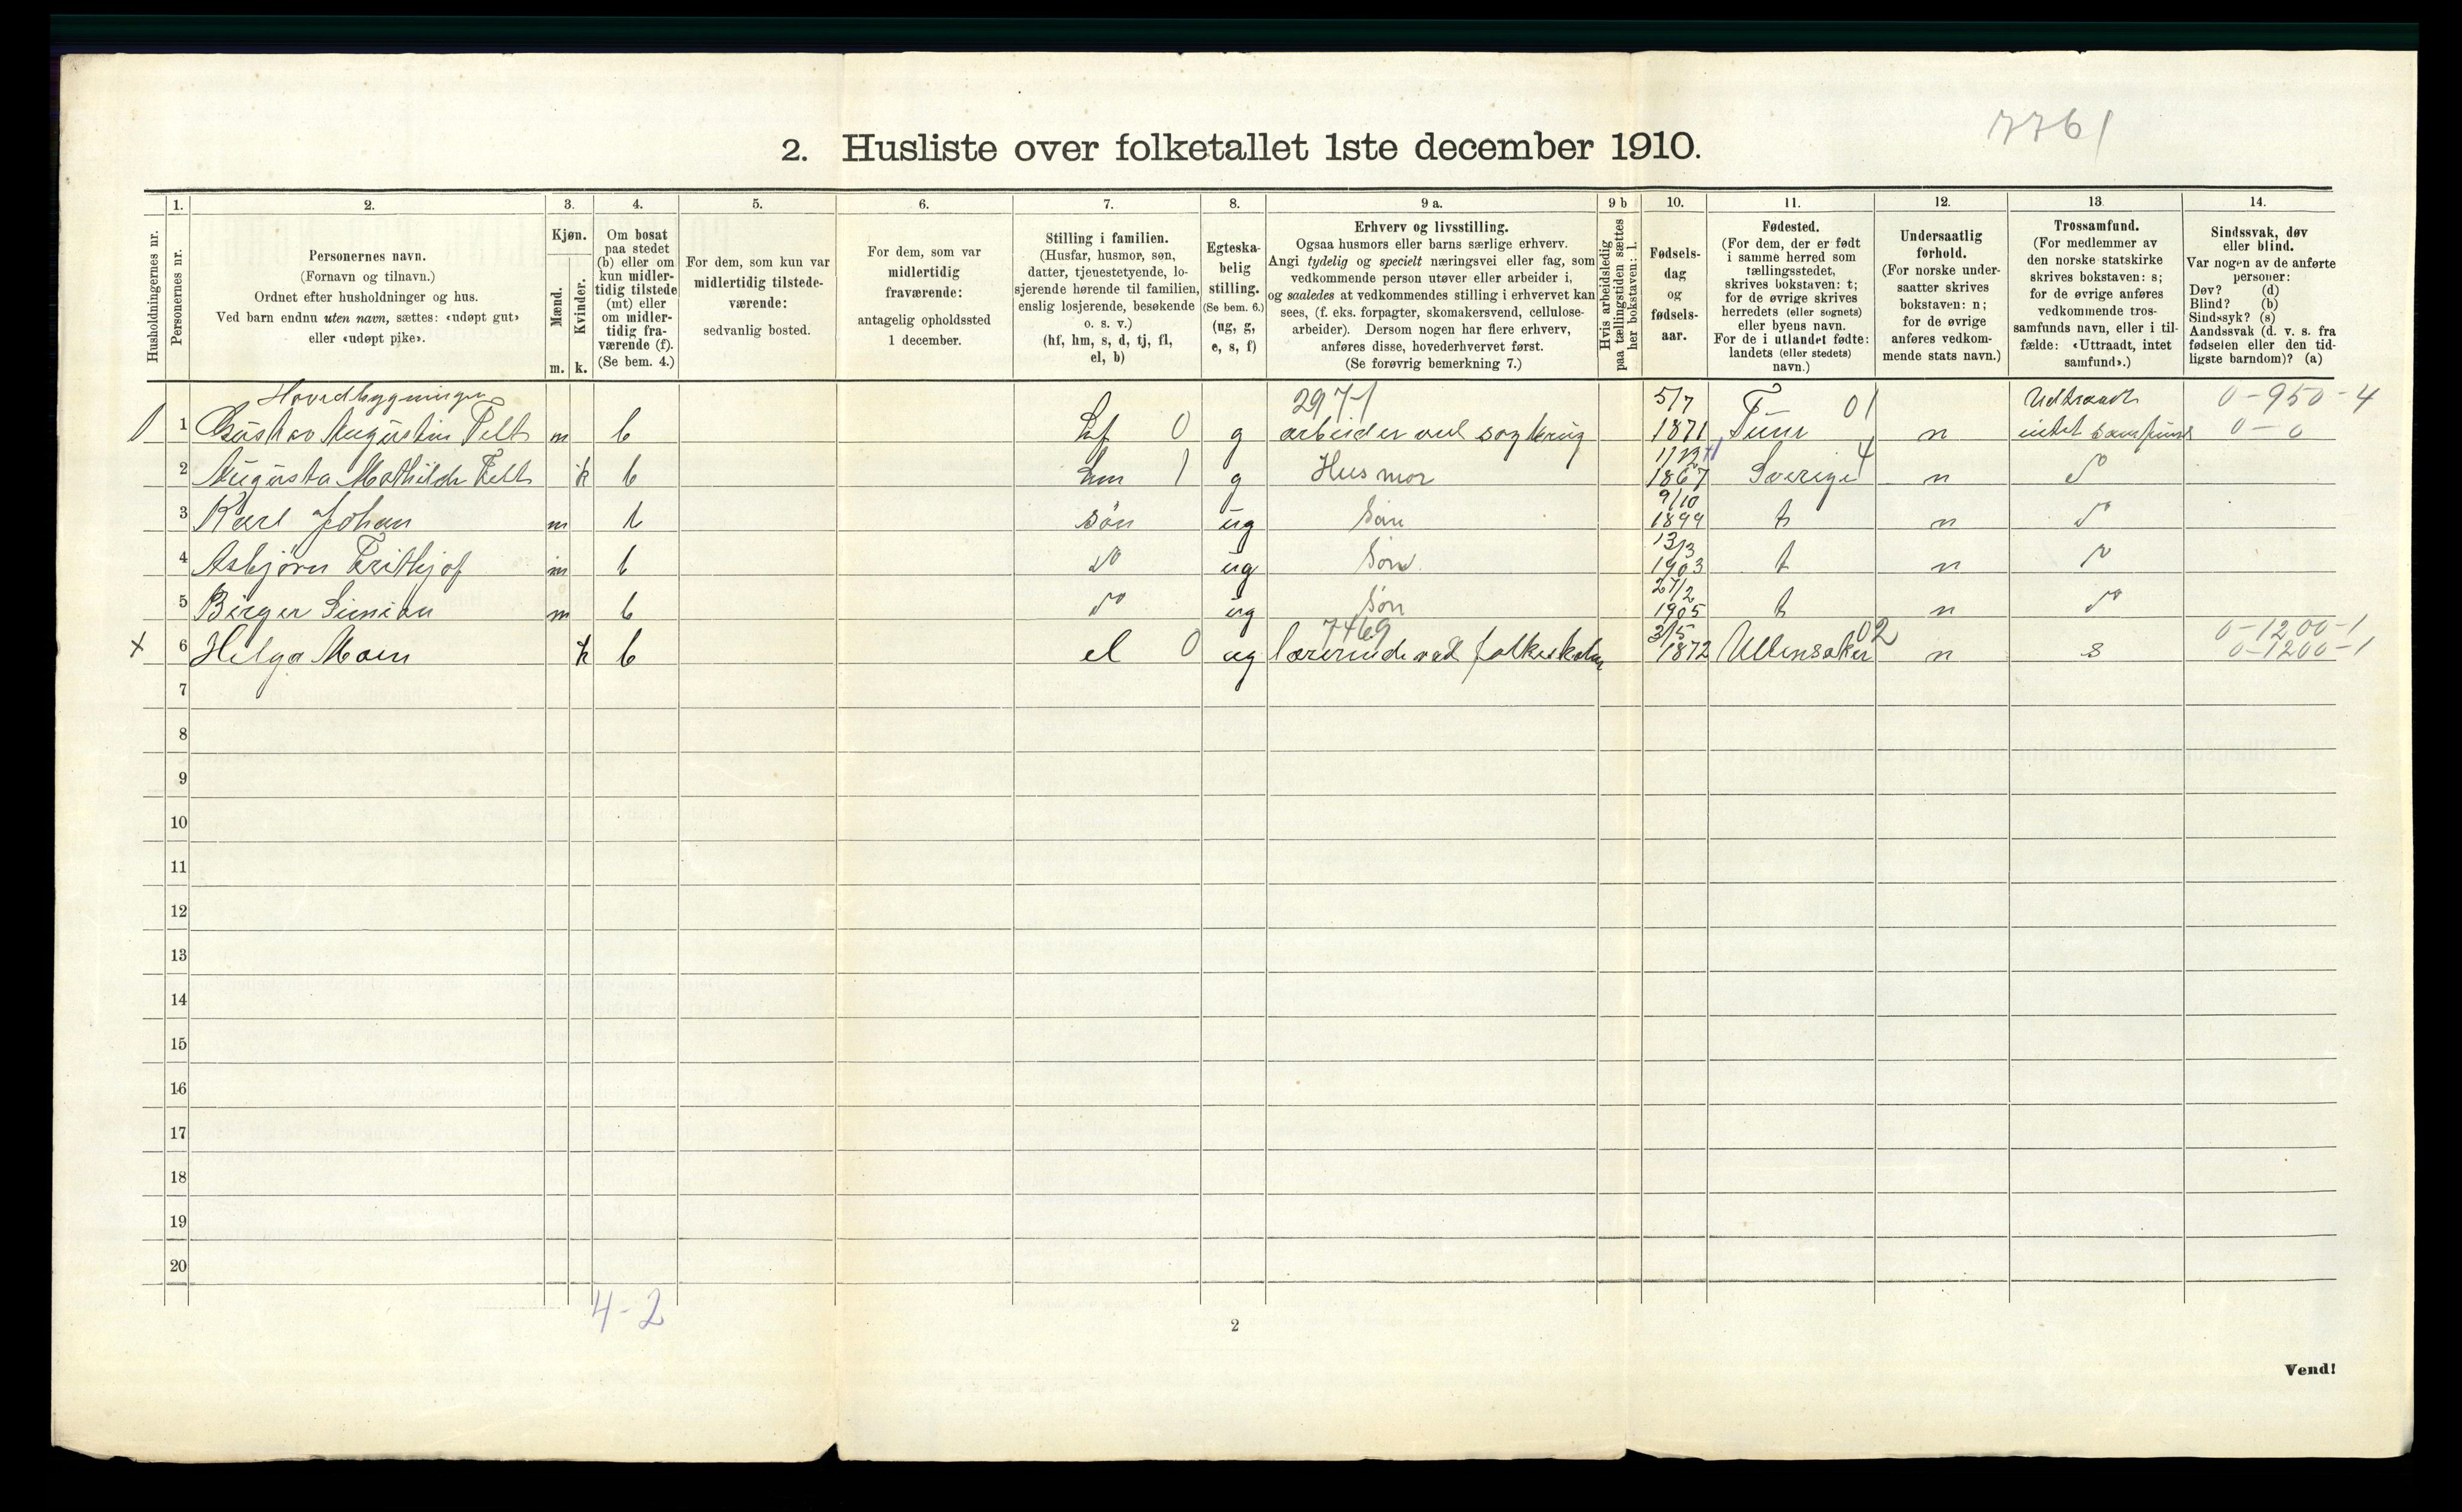 7761
2. Husliste over folketallet 1ste december 1910.
Husholdningernes nr.
1.
Personernes nr.
2.
Personernes navn.
(Fornavn og tilnavn.)
Ordnet efter husholdninger og hus.
Ved barn endnu uten navn, sættes: «udøpt gut»
eller «udøpt pike».
3.
Kjøn.
Mænd.
Kvinder.
m. k.
4.
Om bosat
paa stedet
(b) eller om
kun midler-
tidig tilstede
(mt) eller
om midler-
tidig fra-
værende (f).
(Se bem. 4.)
5.
For dem, som kun var
midlertidig tilstede-
værende:
sedvanlig bosted.
6.
For dem, som var
midlertidig
fraværende:
antagelig opholdssted
1 december.
7.
Stilling i familien.
(Husfar, husmor, søn,
datter, tjenestetyende, lo-
sjerende hørende til familien,
enslig losjerende, besøkende
o. s. v.)
(hf, hm, s, d, tj, fl,
el, b)
8.
Egteska-
belig
stilling.
(Se bem. 6.)
(ug, g,
e, s, f)
9 a.
Erhverv og livsstilling.
Ogsaa husmors eller barns særlige erhverv.
Angi tydelig og specielt næringsvei eller fag, som
vedkommende person utøver eller arbeider i,
og saaledes at vedkommendes stilling i erhvervet kan
sees, (f. eks. forpagter, skomakersvend, cellulose-
arbeider). Dersom nogen har flere erhverv,
anføres disse, hovederhvervet først.
(Se forøvrig bemerkning 7.)
9 b
Hvis arbeidsledig
paa tællingstiden sættes
her bokstaven: l.
10.
Fødsels-
dag
og
fødsels-
aar.
11.
Fødested.
(For dem, der er født
i samme herred som
tællingsstedet,
skrives bokstaven: t;
for de øvrige skrives
herredets (eller sognets)
eller byens navn.
For de i utlandet fødte:
landets (eller stedets)
navn.)
12.
Undersaatlig
forhold.
(For norske under-
saatter skrives
bokstaven: n;
for de øvrige
anføres vedkom-
mende stats navn.)
13.
Trossamfund.
(For medlemmer av
den norske statskirke
skrives bokstaven: s;
for de øvrige anføres
vedkommende tros-
samfunds navn, eller i til-
fælde: «Uttraadt, intet
samfund».)
14.
Sindssvak, døv
eller blind.
Var nogen av de anførte
personer:
Døv? (d)
Blind? (b)
Sindssyk? (s)
Aandssvak (d. v. s. fra
fødselen eller den tid-
ligste barndom)? (a)
Hovedbygningen 2971 5/7 01 Udtraadt 0-950-4
1 Gustav Augustin Felt m b hf 0 g arbeider ved sagbrug 1871 Tune n intet samfund 0-0
2 Augusta Mathilde Felt k b hm 1 g Husmor 1867 Sverige 4 n do
9/10
3 Karl Johan m b søn ug Søn 1899 t n do
13/3
4 Asbjørn Frithjof m b do ug Søn 1903 t n do
27/2
5 Birger Simon m b do ug Søn 1905 t n do
7469 3/5 02 0-1200-1
x 6 Helga Moen k b el 0 ug lærerinde ved folkeskolen 1872 Ullensaker n s 0-1200-1
7
8
9
10
11
12
13
14
15
16
17
18
19
20
4-2
2
Vend!